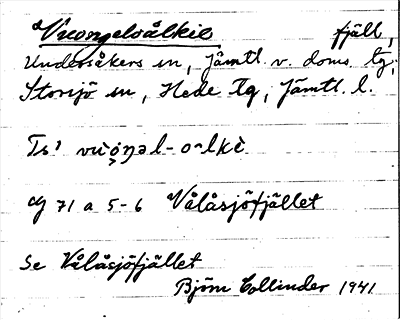 Vuongelvålkie fjäll,
Undersåkers sn, Jämtl. v. doms. tg;
Storsjö sn, Hede tg, Jämtl. l.
Ts¹ vùo̭ŋəl-o-lkè
71 a 5-6 Vålåsjöfjället
Se Vålåsjöfjället
Björn Collinder 1941